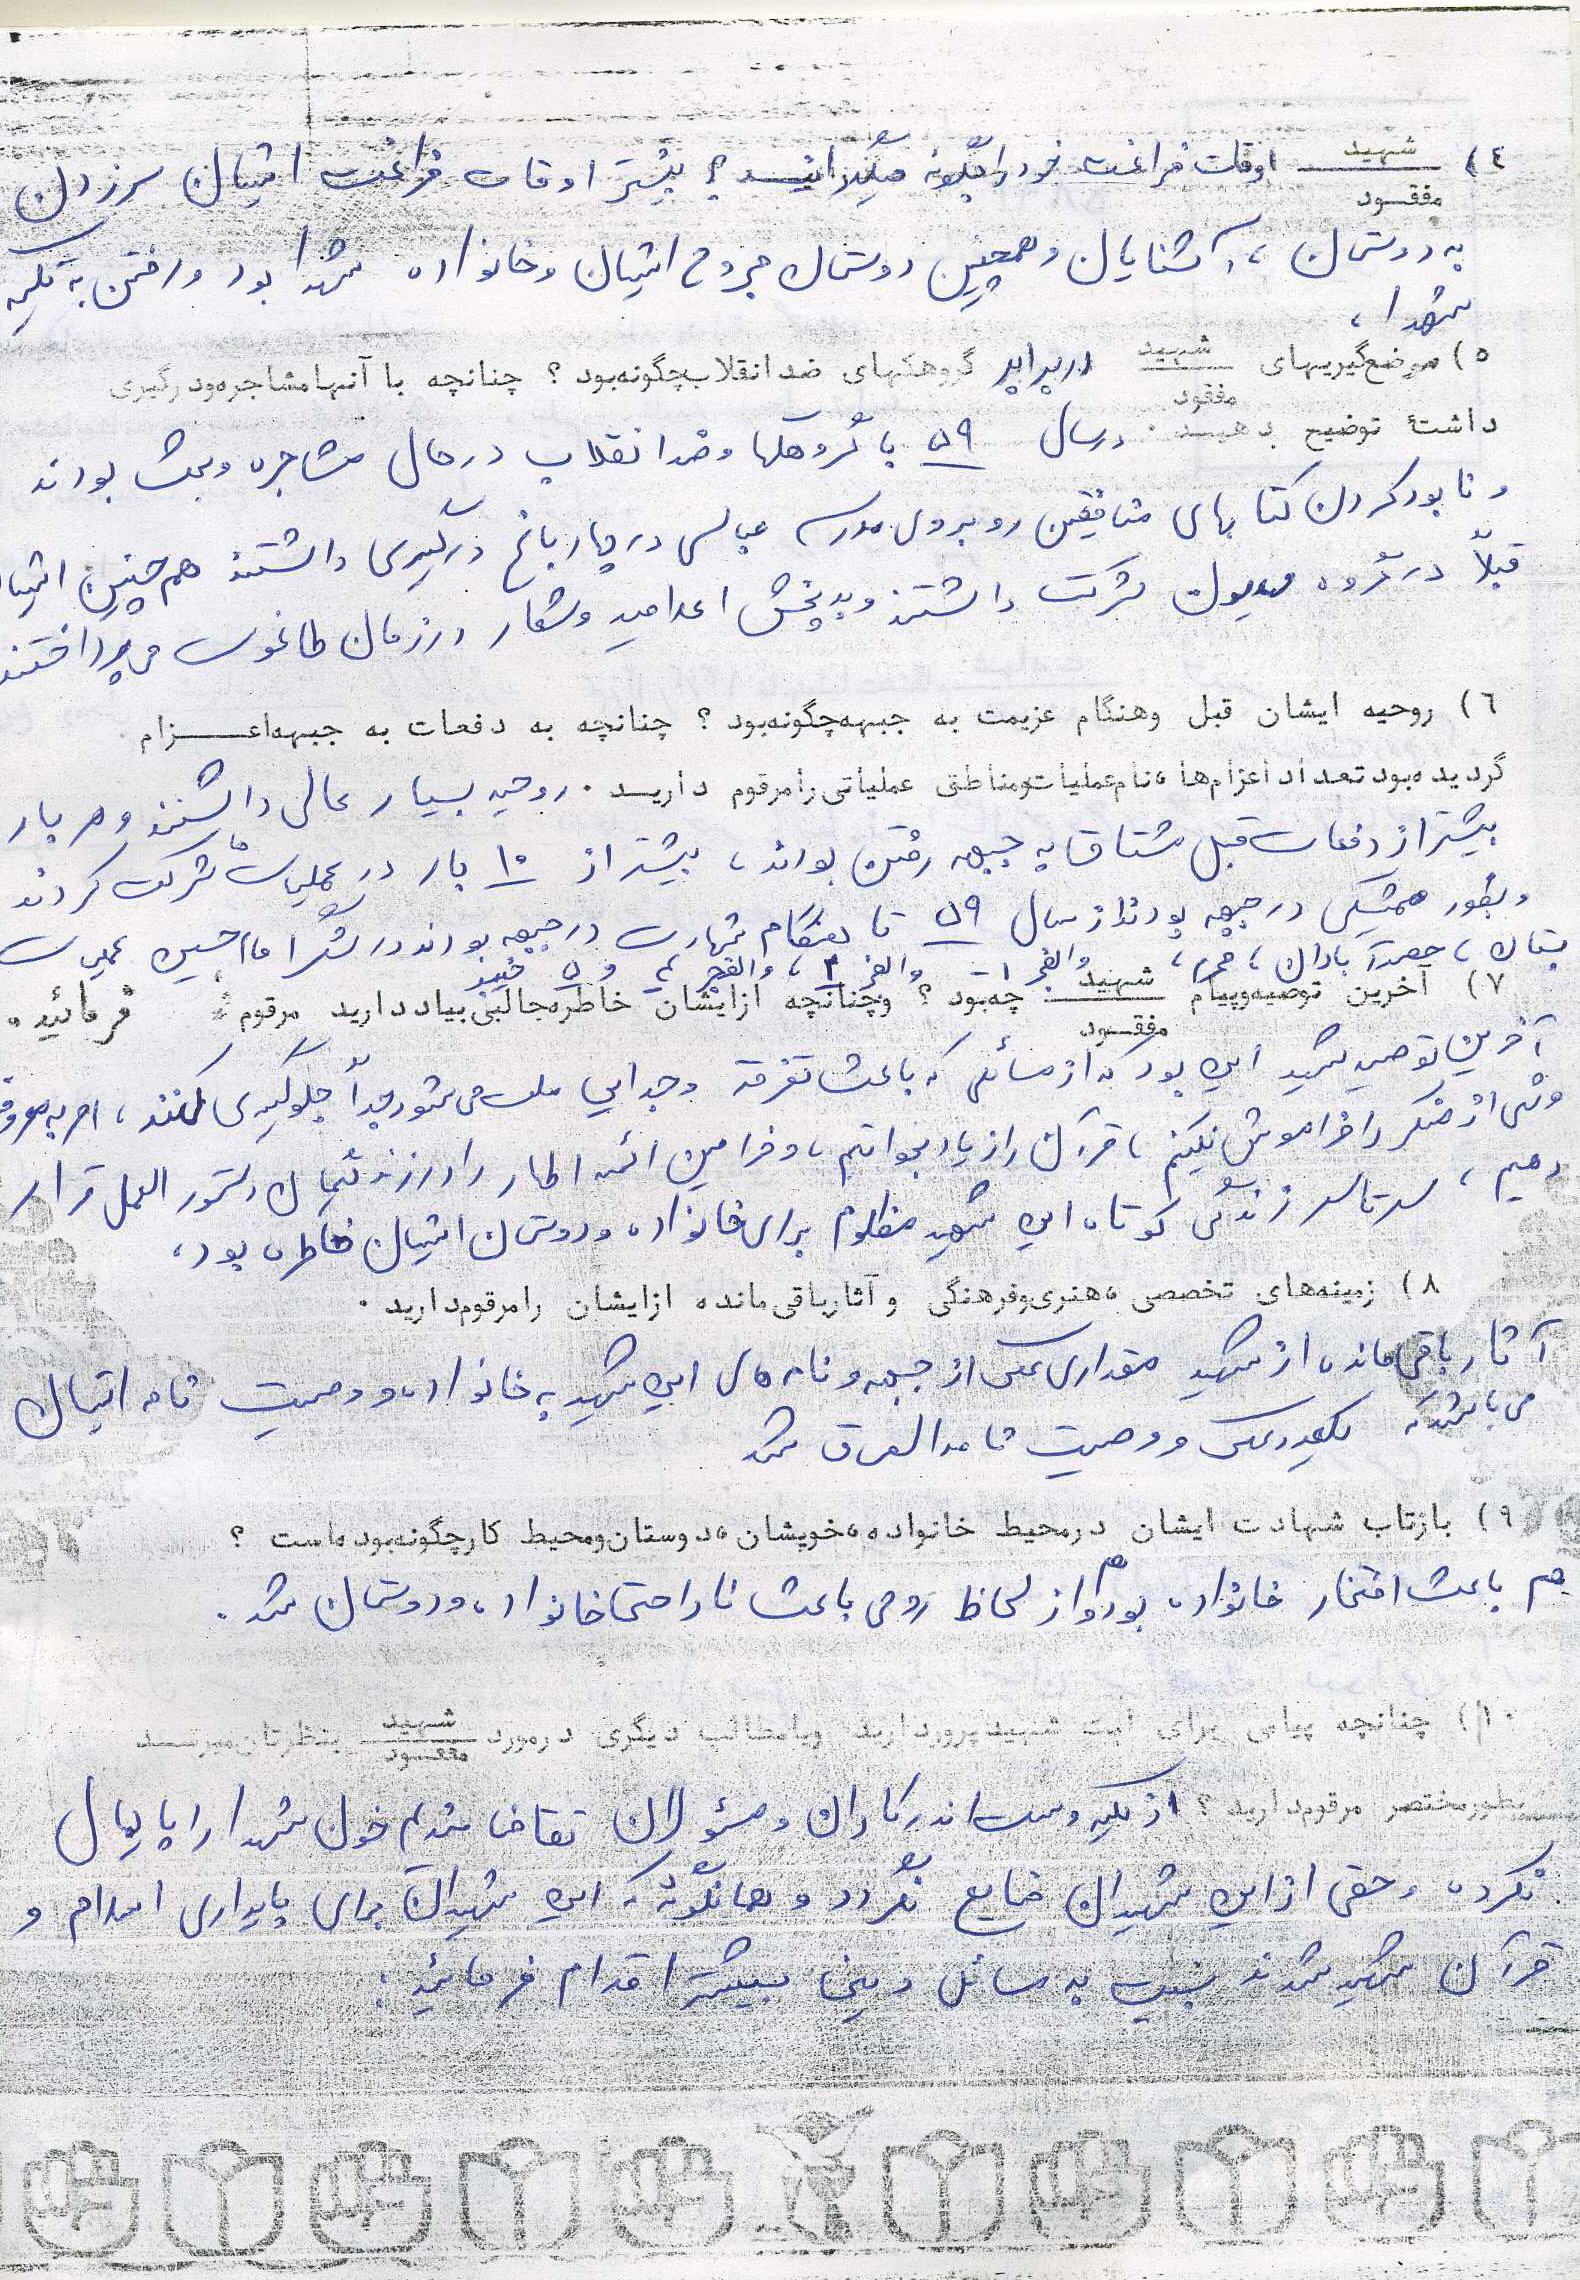 ٤) شهید / مفقود اوقات فراغت خود را چگونه میگذرانید؟ بیشتر اوقات فراغت ایشان سرزدن
به دوستان، آشنایان و همچنین دوستان مجروح ایشان و خانواده شهدا بود و رفتن به تکیه
شهدا،
٥) موضع‌گیریهای شهید / مفقود در برابر گروهکهای ضد انقلاب چگونه بود؟ چنانچه با آنها مشاجره و درگیری
داشته توضیح بدهید. در سال ٥٩ با گروهکها و ضد انقلاب در حال مشاجره و بحث بودند
و نابود کردن کتابهای منافقین روبروی مدرسه عباسی در چهارباغ درگیری داشتند همچنین ایشان
قبلاً در گروه شرکت داشتند و به پخش اعلامیه و شعار در زمان طاغوت می‌پرداختند
٦) روحیه ایشان قبل و هنگام عزیمت به جبهه چگونه بود؟ چنانچه به دفعات به جبهه اعزام
گردیده بود تعداد اعزام‌ها، نام عملیات و مناطق عملیاتی را مرقوم دارید. روحیه بسیار عالی داشتند و هر بار
بیشتر از دفعات قبل مشتاق به جبهه رفتن بودند، بیشتر از ١٠ بار در عملیات‌ها شرکت کردند
و بطور همیشگی در جبهه بودند از سال ٥٩ تا هنگام شهادت در جبهه بودند در لشگر امام حسین عملیات
بستان، حصر آبادان، محرم، والفجر ١ - والفجر ٢، والفجر ٤ و ٥ خیبر
٧) آخرین توصیه و پیام شهید / مفقود چه بود؟ و چنانچه از ایشان خاطره جالبی بیاد دارید مرقوم فرمائید.
آخرین توصیه شهید این بود که از مسائلی که باعث تفرقه و جدایی ملت می‌شود جداً جلوگیری کنند، امر به معروف
و نهی از منکر را فراموش نکنیم، قرآن را زیاد بخوانیم، و فرامین ائمه اطهار را در زندگیمان دستور العمل قرار
دهیم، سرتاسر زندگی کوتاه این شهید مظلوم برای خانواده و دوستان ایشان خاطره بود،
٨) زمینه‌های تخصصی، هنری و فرهنگی و آثار باقی مانده از ایشان را مرقوم دارید.
آثار باقی مانده از شهید مقداری عکس از جبهه و نامه های این شهید به خانواده و وصیت نامه ایشان
می باشد که عکس و وصیت نامه الصاق شد
٩) بازتاب شهادت ایشان در محیط خانواده، خویشان، دوستان و محیط کار چگونه بوده است؟
هم باعث افتخار خانواده بود و هم از لحاظ روحی باعث ناراحتی خانواده و دوستان شد.
١٠) چنانچه پیامی برای امت شهیدپرور دارید ویا مطالب دیگری در مورد شهید / مفقود بنظرتان میرسد
بطور مختصر مرقوم دارید؟ از کلیه دست اندرکاران و مسئولان تقاضا مندیم خون شهدا را پایمال
نکرده و حقی از این شهیدان ضایع نگردد و همانگونه که این شهیدان برای پایداری اسلام و
قرآن شهید شدند نسبت به مسائل دینی بیشتر اقدام فرمائید.